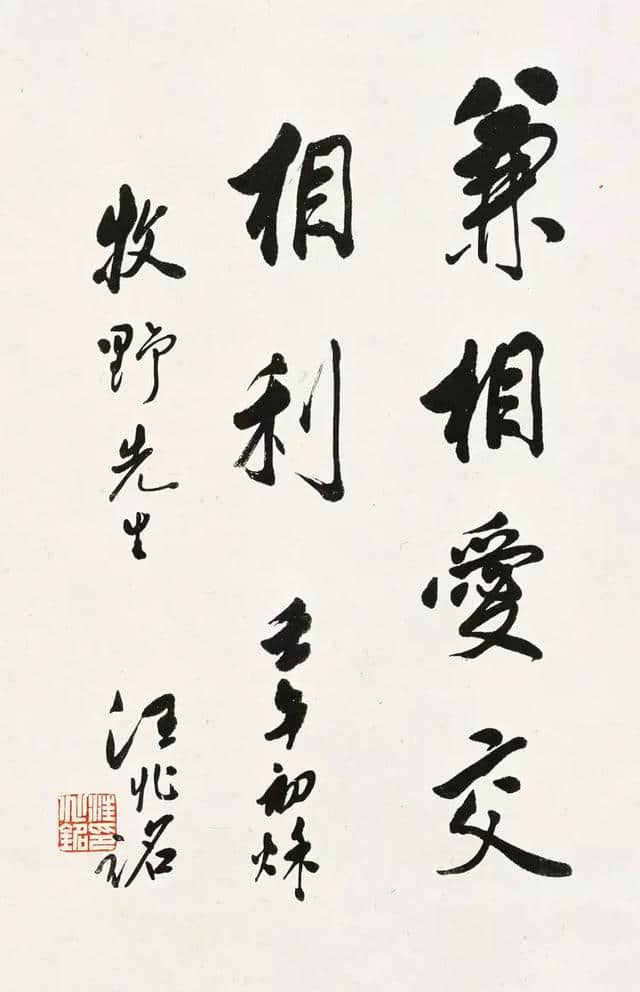 兼相愛交
相利 壬午初秌
牧野先生 汪兆銘
汪兆銘印